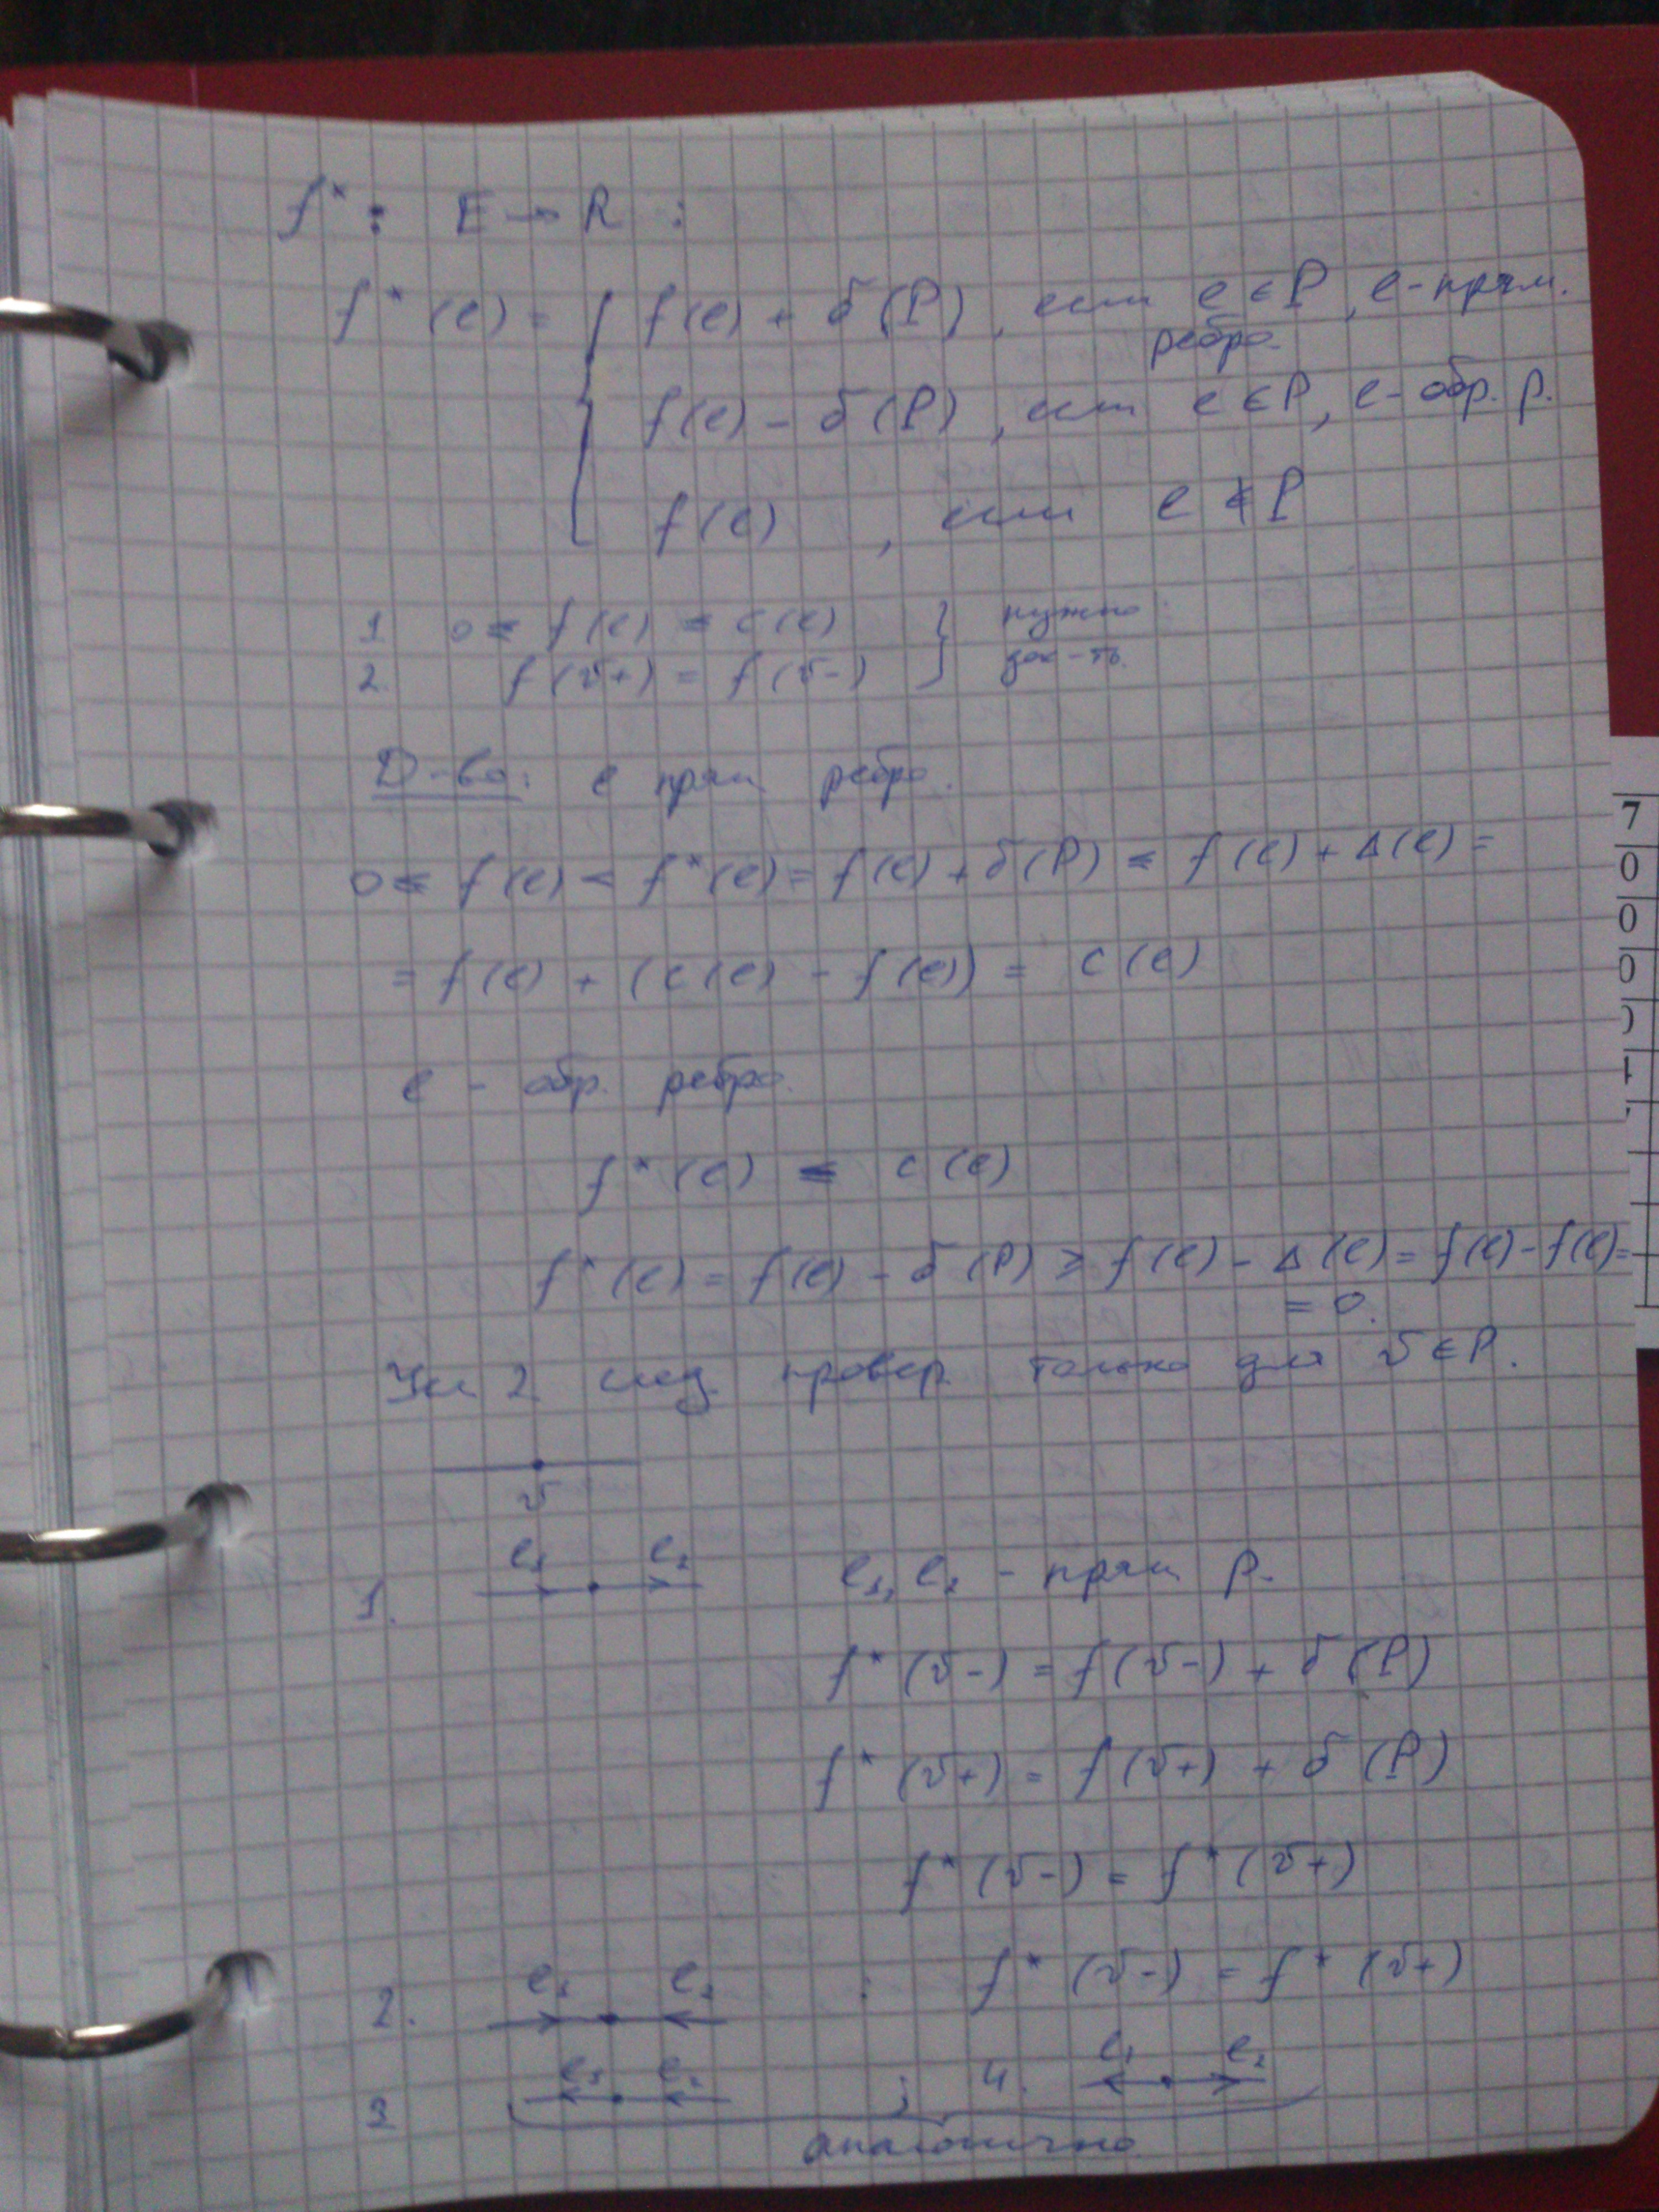 f* : E → R :
f*(e) = { f(e) + δ(P), если e ∈ P, e - прям.
ребро.
f(e) - δ(P), если e ∈ P, e - обр. р.
f(e) , если e ∉ P
1 0 ≤ f(e) ≤ c(e) } нужно
2. f(v+) = f(v-) док-ть.
Д-во: e прям ребро.
0 ≤ f(e) < f*(e) = f(e) + δ(P) ≤ f(e) + Δ(e) =
= f(e) + (c(e) - f(e)) = c(e)
e - обр. ребро.
f*(e) ≤ c(e)
f*(e) = f(e) - δ(P) ≥ f(e) - Δ(e) = f(e) - f(e) =
= 0.
Усл 2 след. провер. только для v ∈ P.
v
1. e₁ e₂ e₁, e₂ - прям р.
f*(v-) = f(v-) + δ(P)
f*(v+) = f(v+) + δ(P)
f*(v-) = f*(v+)
2. e₁ e₂ : f*(v-) = f*(v+)
3 e₁ e₂ ; 4. e₁ e₂
аналогично
7
0
0
0